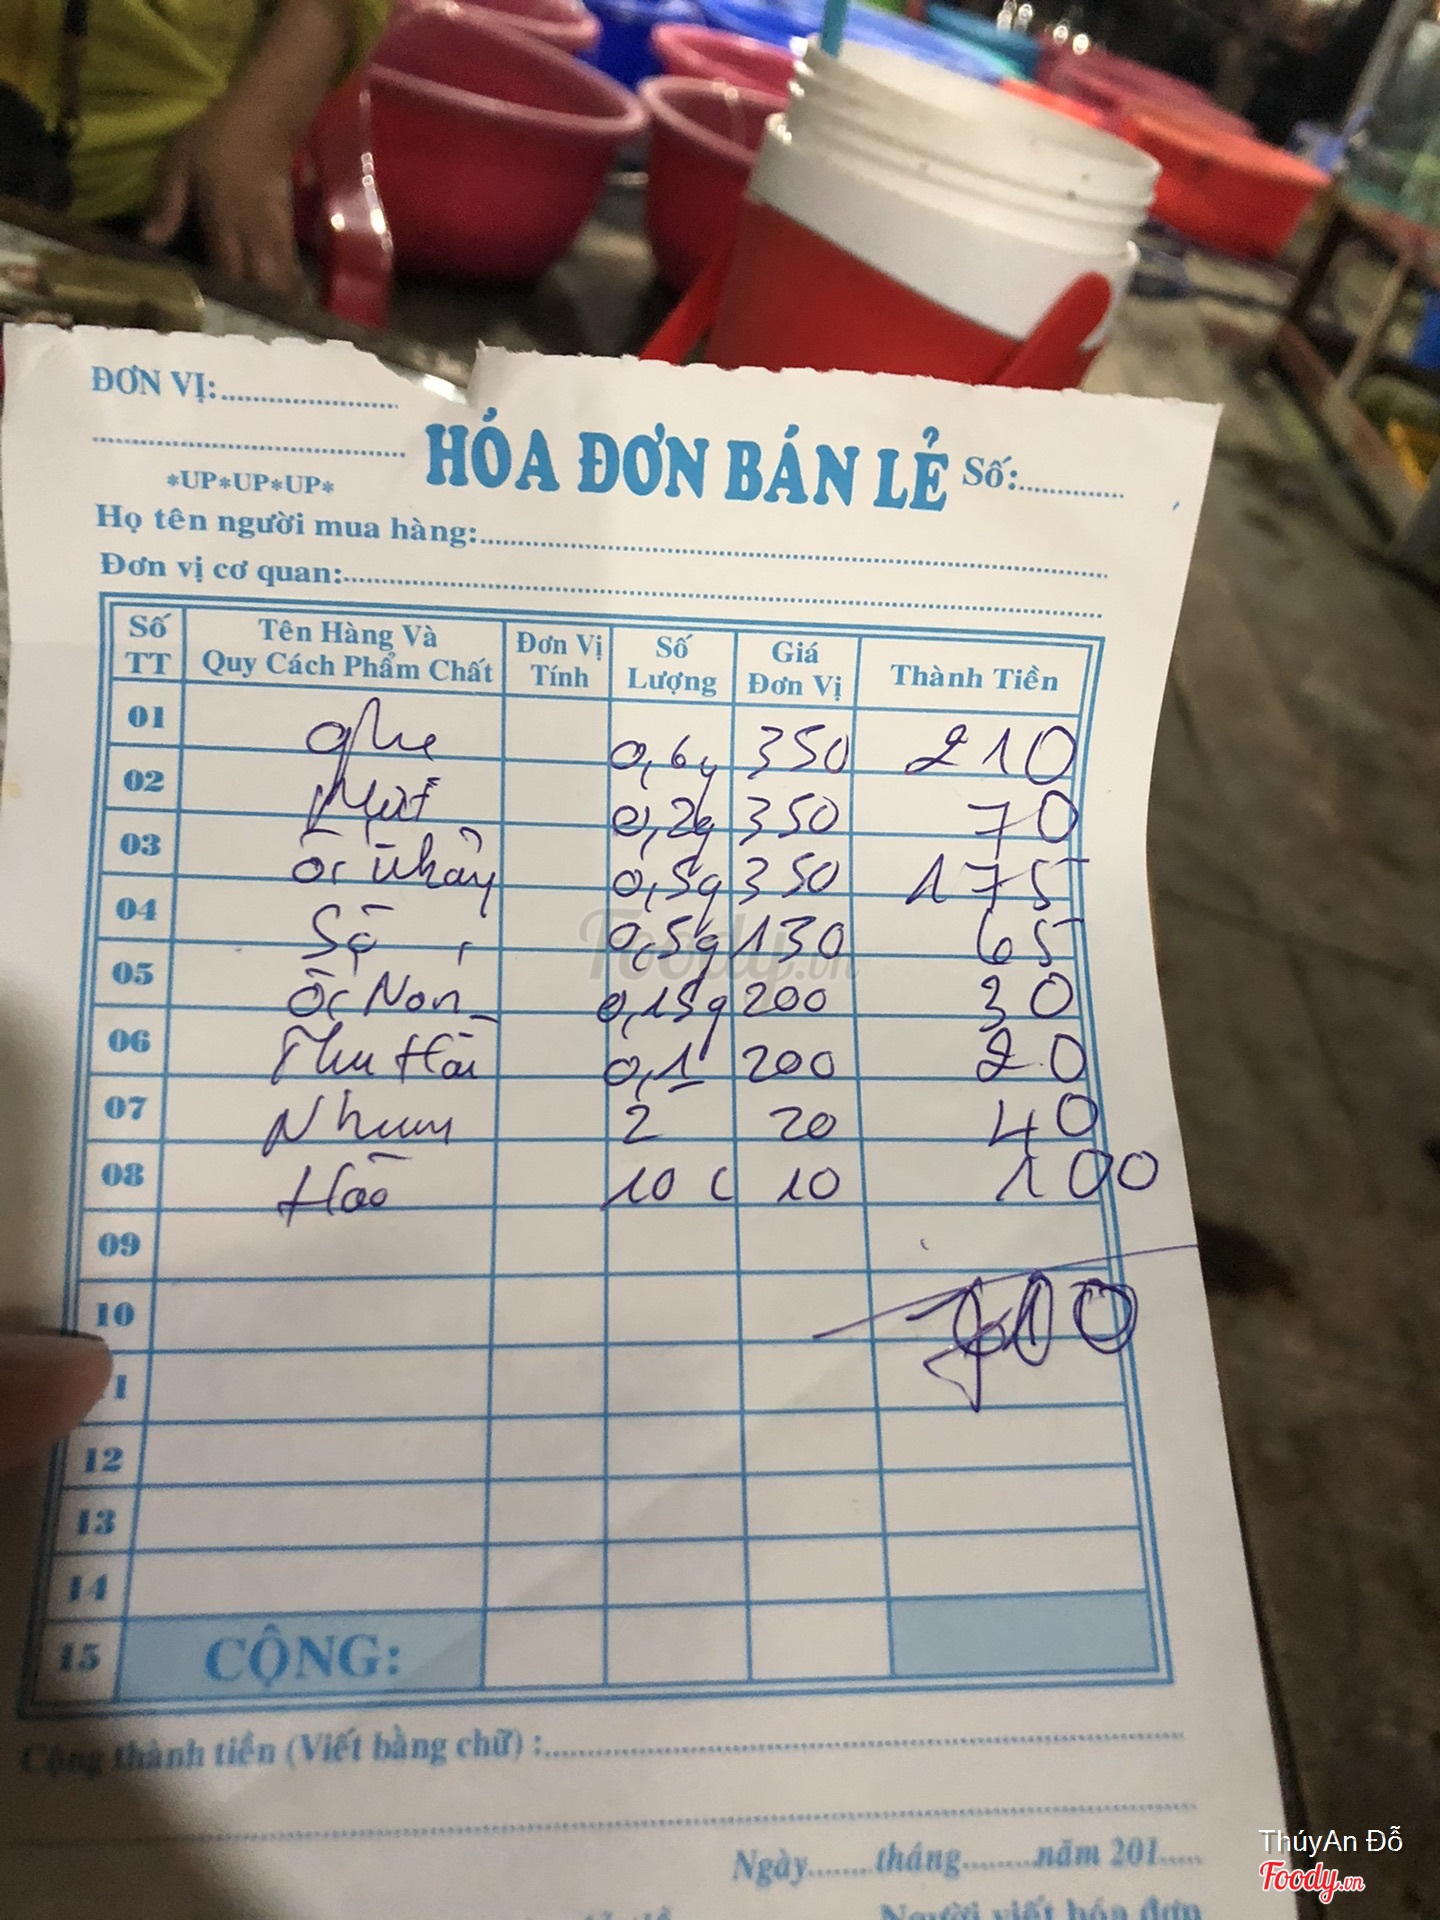 ĐƠN VỊ:
HÓA ĐƠN BÁN LẺ Số:
*UP*UP*UP*
Họ tên người mua hàng:
Đơn vị cơ quan:
Số TT Tên Hàng Và Quy Cách Phẩm Chất Đơn Vị Tính Số Lượng Giá Đơn Vị Thành Tiền
01 ghẹ 0,6g 350 210
02 Mực 0,2g 350 70
03 Ốc nhảy 0,5g 350 175
04 Sò 0,5g 130 65
05 Ốc Non 0,15g 200 30
06 Thu Hải 0,1 200 20
07 Nhum 2 20 40
08 Hào 10 c 10 100
09
10 710
11
12
13
14
15 CỘNG:
Cộng thành tiền (Viết bằng chữ) :
Ngày tháng năm 201
Người viết hóa đơn
Foody.vn
ThúyAn Đỗ
Foody.vn